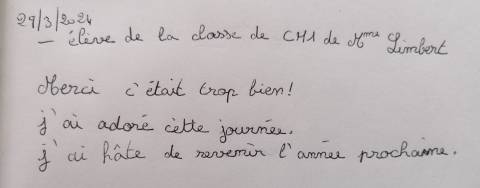 29/3/2024
— élève de la classe de CM1 de Mme Limbert
Merci c'était trop bien!
j'ai adoré cette journée.
j'ai hâte de revenir l'année prochaine.